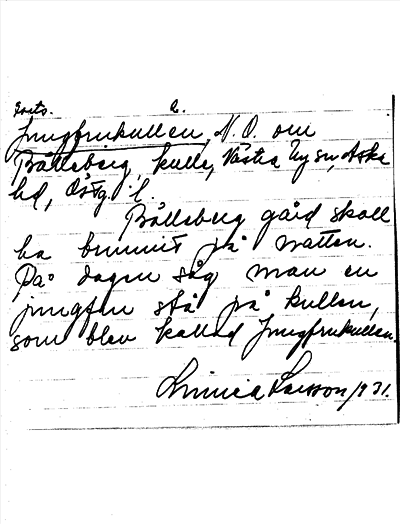 Forts. 2.
Jungfrukullen, N.O. om
Bålleberg, kulle, Västra Ny sn, Aska
hd, Östg. l.
Bålleberg gård skall
ha brunnit på natten.
På dagen såg man en
jungfru stå på kullen,
som blev kallad Jungfrukullen.
Linnea Larsson 1931.